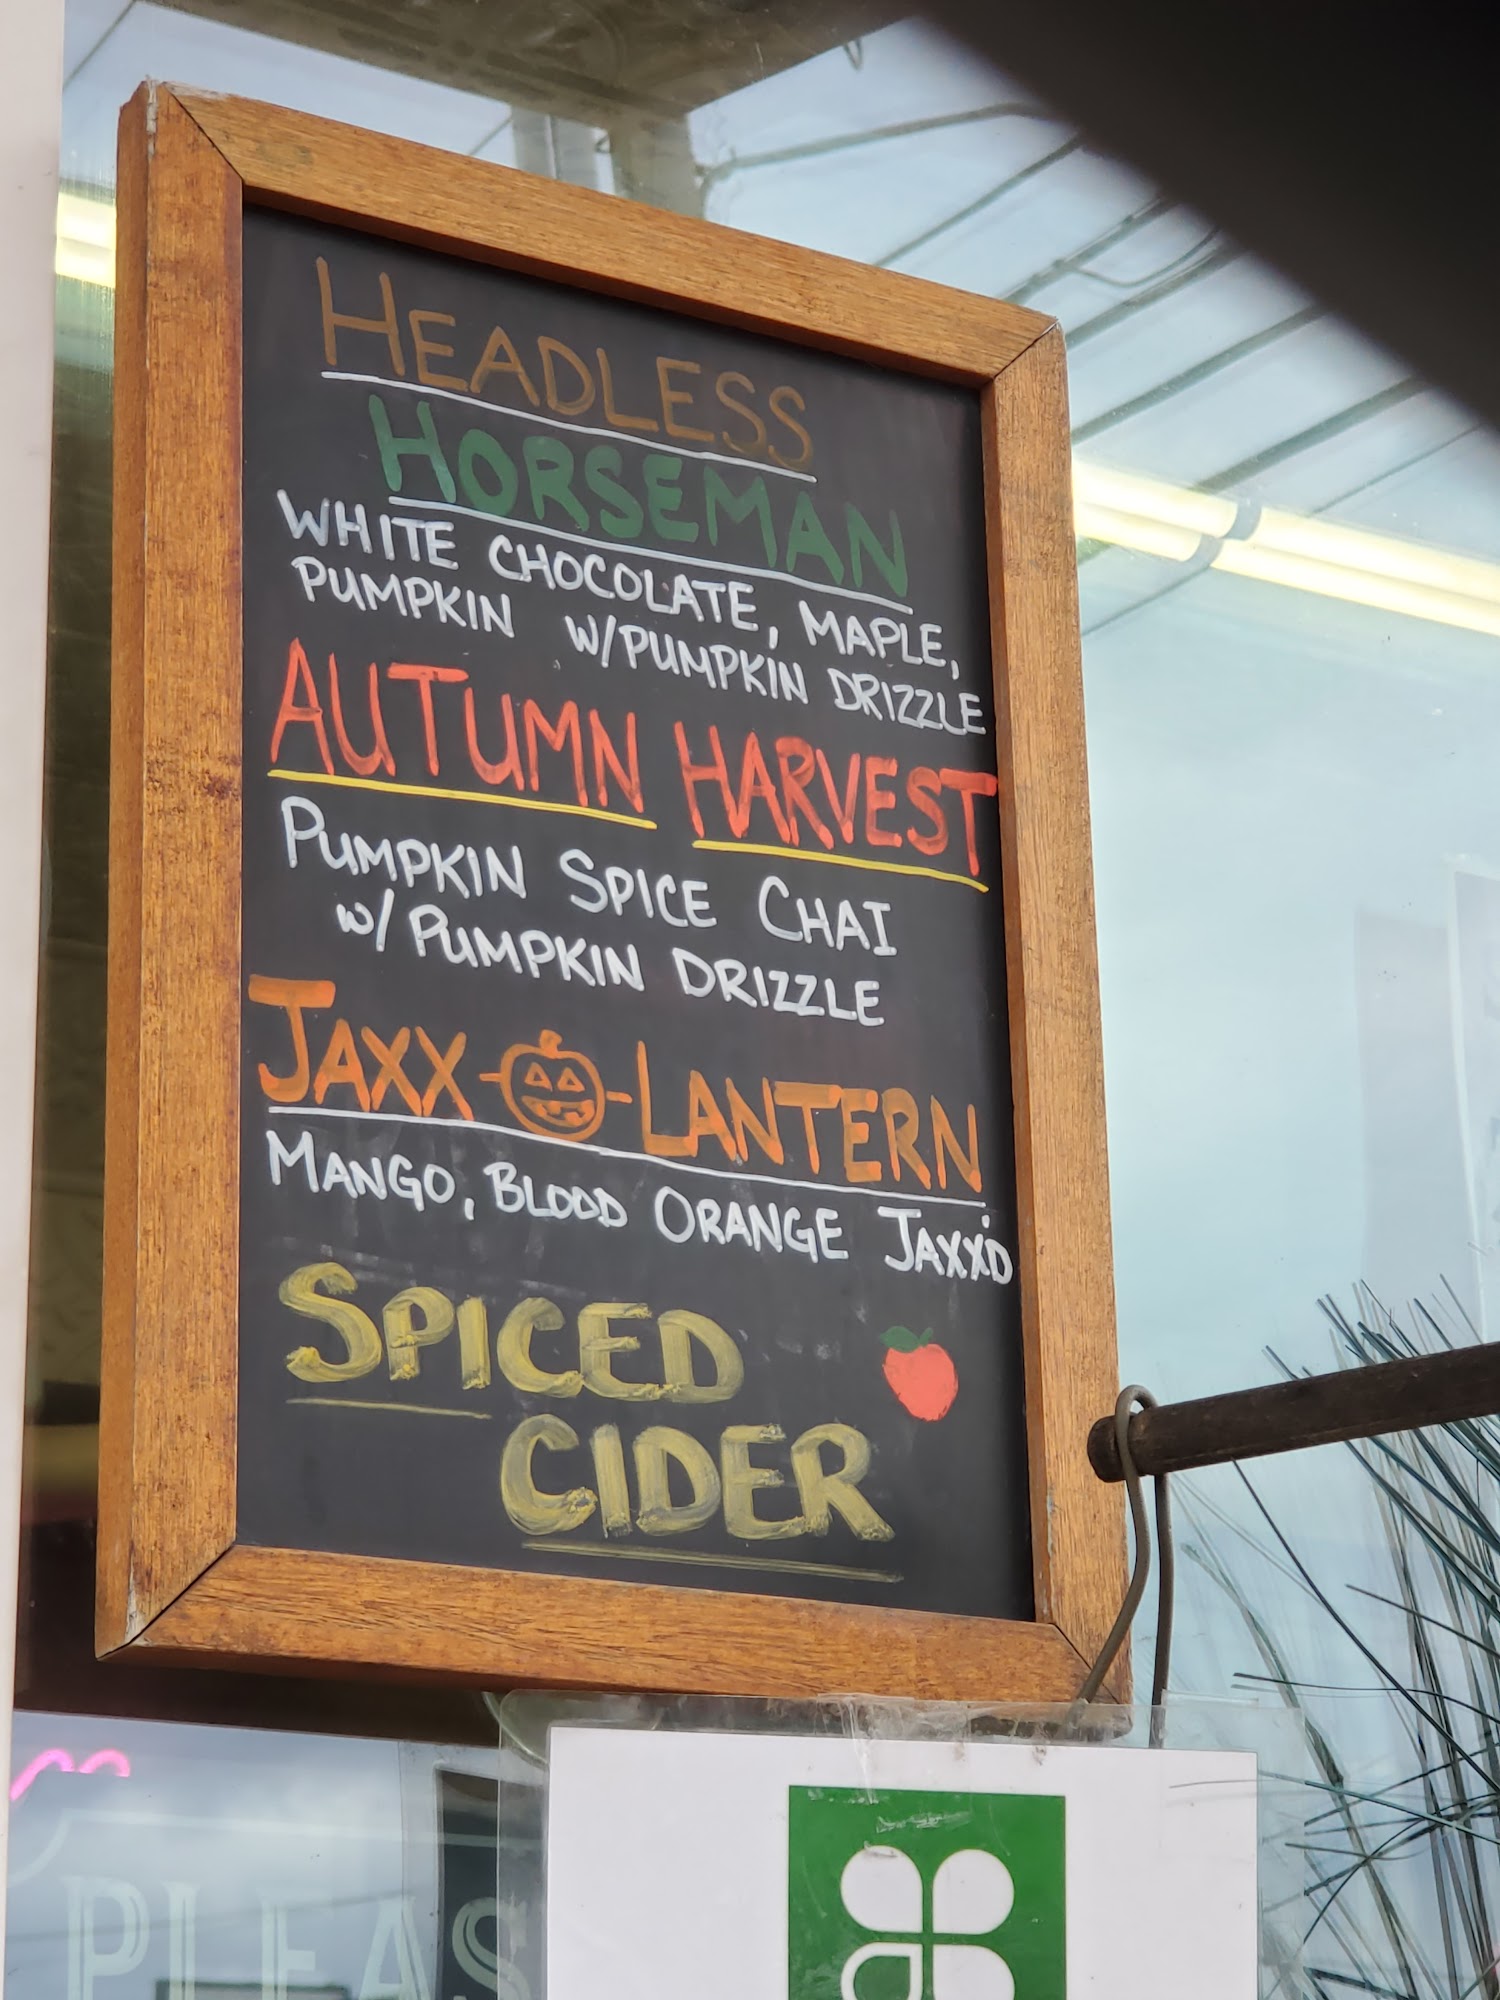 HEADLESS
HORSEMAN
WHITE CHOCOLATE, MAPLE,
PUMPKIN W/PUMPKIN DRIZZLE
AUTUMN HARVEST
PUMPKIN SPICE CHAI
W/ PUMPKIN DRIZZLE
JAXX-O-LANTERN
MANGO, BLOOD ORANGE JAXX'D
SPICED
CIDER
PLEAS